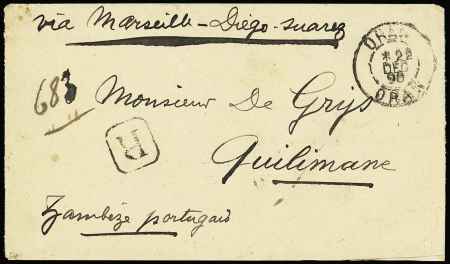 via Marseille - Diégo-Suarez
ORAN
* 22
DEC
98
ORAN
683
Monsieur De Grijs
R
Quilimane
Zambèze portugais